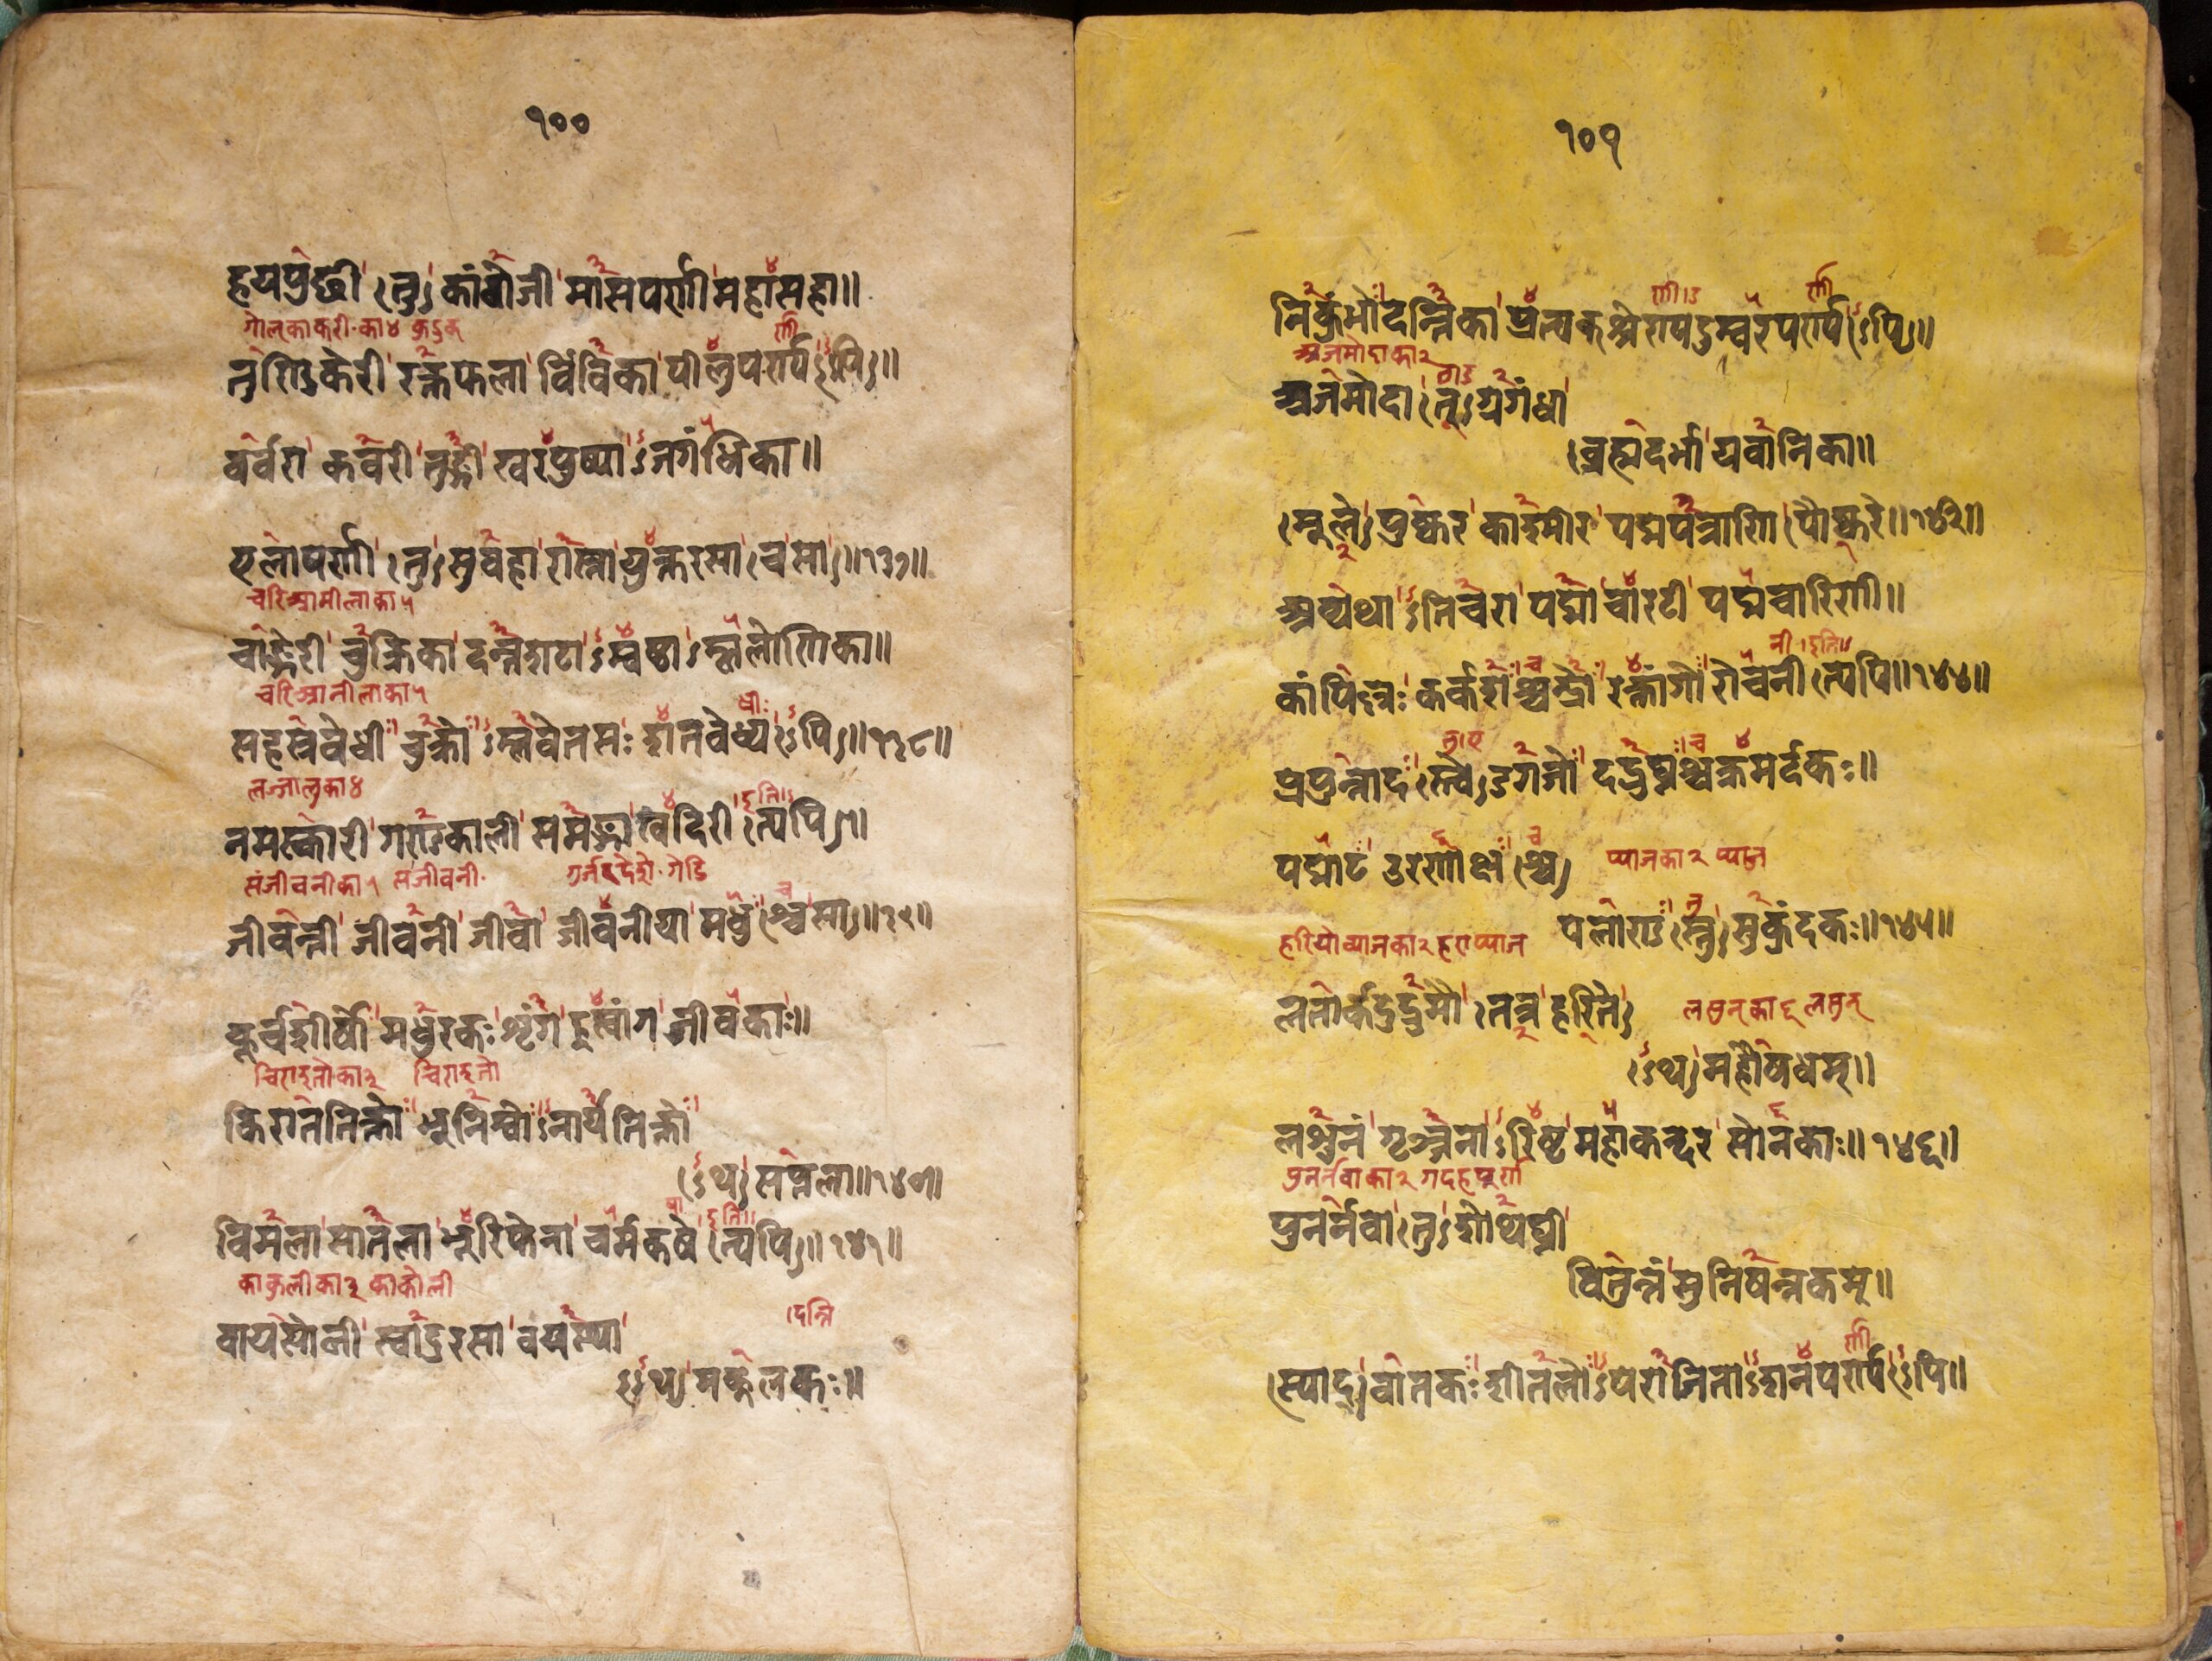 १००
हयपुच्छी तु कांवोजी माषपर्णी महासहा॥
गोलकाकरी का४
तुण्डिकेरी रक्तफला विंविका पीलुपर्ण्यऽपि॥
वर्वरा कवरी तुङ्गी खरपुष्पाऽजगंधिका॥
एलापर्णी तु सुवहा रास्ना युक्तरसा च सा॥१३९॥
चरिअमीलाका५
चाङ्गेरी चुक्रिका दन्तशटाऽम्वष्ठाऽम्ललोणिका॥
चरिअमीलाका५
सहस्रवेधी चुक्रोऽम्लवेतसः शतवेध्यऽपि॥१३८॥
लज्जालुका४
नमस्कारी गण्डकाली समङ्गा खदिरीत्यपि॥
संजीवनीका१ सजीवनी
जीवन्ती जीवनी जीवा जीवनीया मधुश्च सा॥३९॥
कूर्चशीर्षो मधुरकः शृंग ह्रस्वांग जीवकाः॥
चिराइतोका३ चिराइतो
किराततिक्तो भूनिम्वोऽनार्यतिक्तो
ऽथ सप्तला॥१४०॥
विमला सातला भूरिफेना चर्मकषेत्यपि॥१४१॥
काकुलीका३ काकोली
वायसोली स्वादुरसा वयस्था
दन्ति
ऽथ मकूलकः॥
१०१
निकुंभो दन्तिका प्रत्यक्श्रेण्युदुम्वरपर्ण्यऽपि॥
अजमोदाका२
अजमोदा तूग्रगंधा
व्रह्मदर्भा यवानिका॥
मूले पुष्कर काश्मीर पद्मपत्राणि पौष्करे॥१४३॥
अव्यथाऽतिचरा पद्मा चारटी पद्मचारिणी॥
कांपिल्लः कर्कशश्चन्द्रो रक्तांगो रोचनीत्यपि॥१४४॥
प्रपुन्नाडस्त्वेडगजो दद्रुघ्नश्चक्रमर्दकः॥
पद्माट उरणाक्षश्च
प्याजका२ प्याज
पलाण्डुस्तु सुकुंदकः॥१४५॥
हरियोप्याजका२ हराप्याज
लतार्कदुद्रुमौ तत्र हरिते
लसुनका६ लसुन
ऽथ महौषधम्॥
लशुनं गृञ्जनाऽरिष्ट महाकन्दर सोनकाः॥१४६॥
पुनर्नवाका२ गदहपूर्णा
पुनर्नवा तु शोथघ्नी
वितुन्नं सुनिषन्नकम्॥
स्याद्वातकः शीतलोऽपराजिता शनपर्ण्यऽपि॥